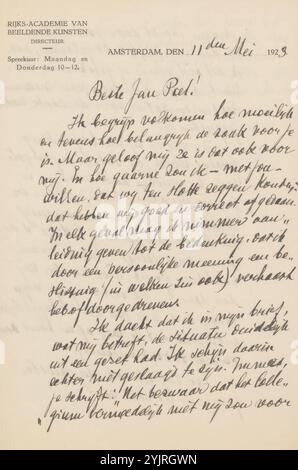 RIJKS-ACADEMIE VAN
BEELDENDE KUNSTEN
DIRECTEUR.
Spreekuur: Maandag en
Donderdag 10—12.
AMSTERDAM, DEN 11den Mei 1923
Beste Jan Poel!
Ik begrijp volkomen hoe moeilijk
en tevens hoe belangrijk de zaak voor je
is. Maar geloof mij ze is dat ook voor
mij. En hoe gaarne zou ik — met jou
willen, dat wij ten slotte zeggen konden:
dat hebben wij goed en correct opgedaan.
In elk geval mag ik nimmer aan-
leiding geven tot de bedenking, dat ik
door een persoonlijke meening een be-
slissing (in welken zin ook) verhaast
heb of doorgedreven.
Ik dacht dat ik in mijn brief,
wat mij betreft, de situatie duidelijk
uit een gezet had. Ik schijn daarin
echter niet geslaagd te zijn. Immers,
je schrijft: "Het bezwaar dat het Colle-
"gium vermoedelijk met mij zou voor
alamy
Image ID: 2YJRGWN
www.alamy.com